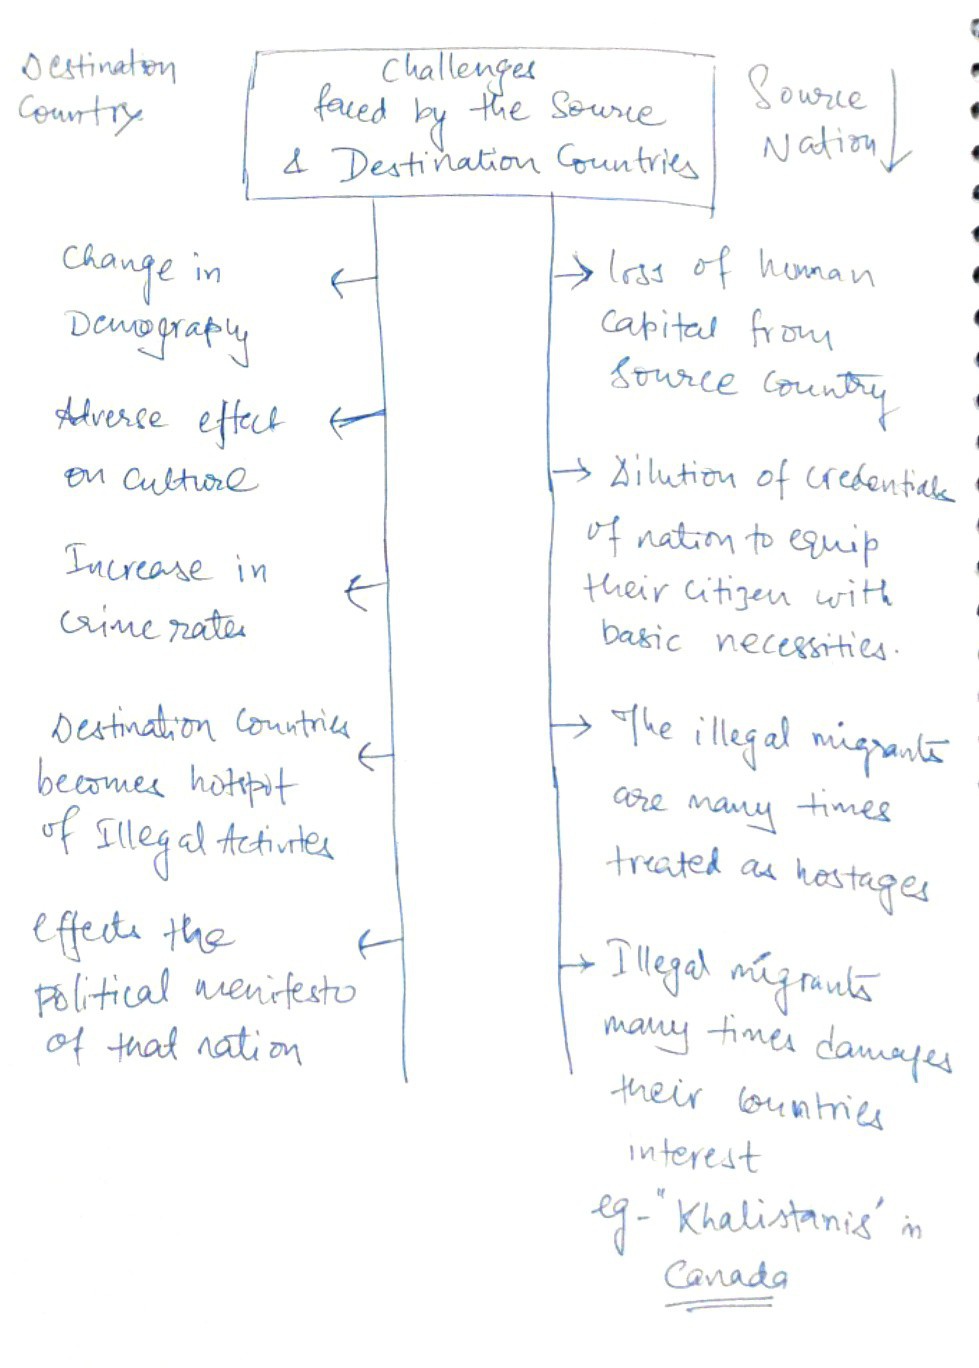 Destination
Country
Challenges
faced by the Source
& Destination Countries
Source
Nation
Change in
Demography
Adverse effect
on culture
Increase in
crime rates
Destination Countries
becomes hotspot
of Illegal Activites
effects the
political menifesto
of that nation
loss of human
capital from
source country
Dilution of credentials
of nation to equip
their citizen with
basic necessities.
The illegal migrants
are many times
treated as hostages
Illegal migrants
many times damages
their countries
interest
eg- "Khalistanis' in
Canada